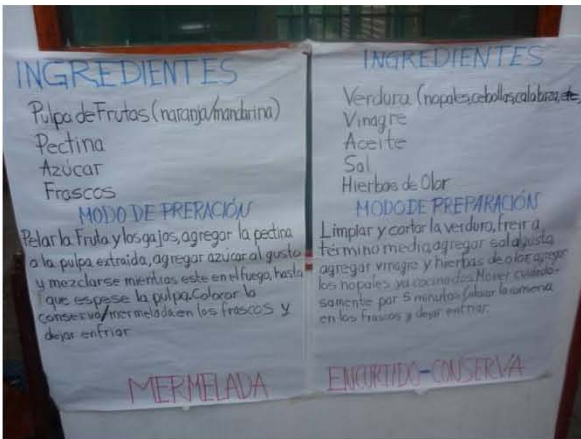 INGREDIENTES
Pulpa de Frutas (naranja/mandarina)
Pectina
Azúcar
Frascos
MODO DE PRERACIÓN
Pelar la Fruta y los gajos, agregar la pectina
a la pulpa extraida, agregar azúcar al gusto
y mezclarse mientras este en el fuego, hasta
que espese la pulpa. Colocar la
conserva/mermelada en los frascos y
dejar enfriar
MERMELADA
INGREDIENTES
Verdura (nopales, cebollas, calabaza, etc
Vinagre
Aceite
Sal
Hierbas de Olor
MODO DE PREPARACIÓN
Limpiar y cortar la verdura, freir a
término medio, agregar sal al gusto,
agregar vinagre y hierbas de olor, agregar
los nopales ya cocinados. Mover cuidado-
samente por 5 minutos. Colocar la conserva
en los frascos y dejar enfriar.
ENCURTIDO-CONSERVA